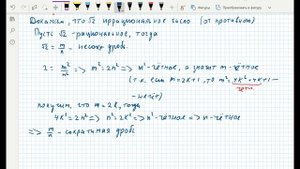 Докажем, что √2 иррациональное число (от противного)
Пусть √2 - рациональное, тогда
√2 = m/n - несокр. дробь
2 = m²/n² => m² = 2n² => m² - чётное, а значит m - чётное
(т.к. если m = 2k+1, то m² = 4k²+4k+1 -
- нечёт)
получим, что m = 2l, тогда
4l² = 2n² => n² = 2l² => n² - чётное => n - чётное
=> m/n - сократимая дробь